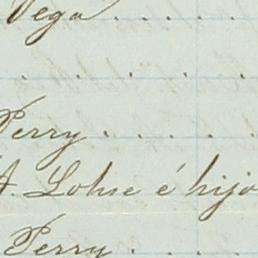 Vega . . . . . . .
. . . . . .
Perry . . . . .
A. Lohse é hijo
Perry . . . . .